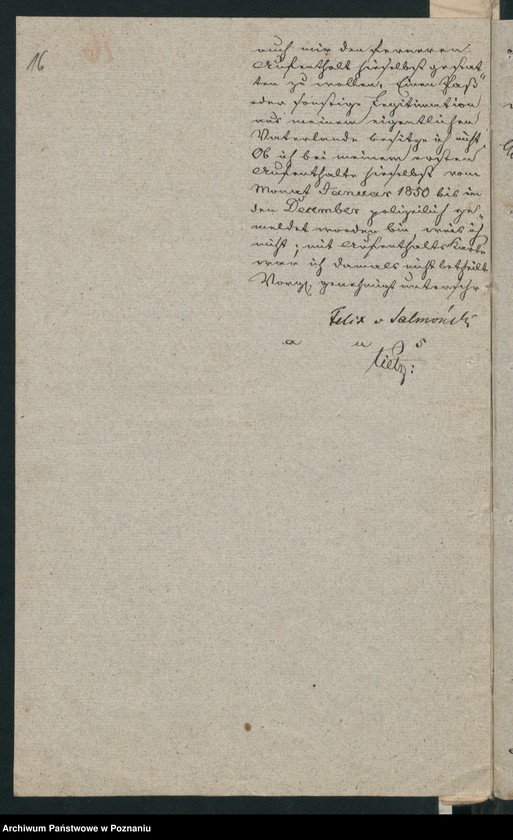 16
auch mir den ferneren
Aufenthalt hieselbst gestat-
ten zu wollen. Einen Paß
oder sonstige Legitimation
aus meinem eigentlichen
Vaterlande besitze ich nicht.
Ob ich bei meinem ersten
Aufenthalte hieselbst vom
Monat Januar 1850 bis in
den December polizeilich ge-
meldet worden bin, weis ich
nicht; mit Aufenthalts Karte
war ich damals nicht betheilt.
Vorgl. genehmigt unterschr
Felix v Salmoński
a u s
Archiwum Państwowe w Poznaniu